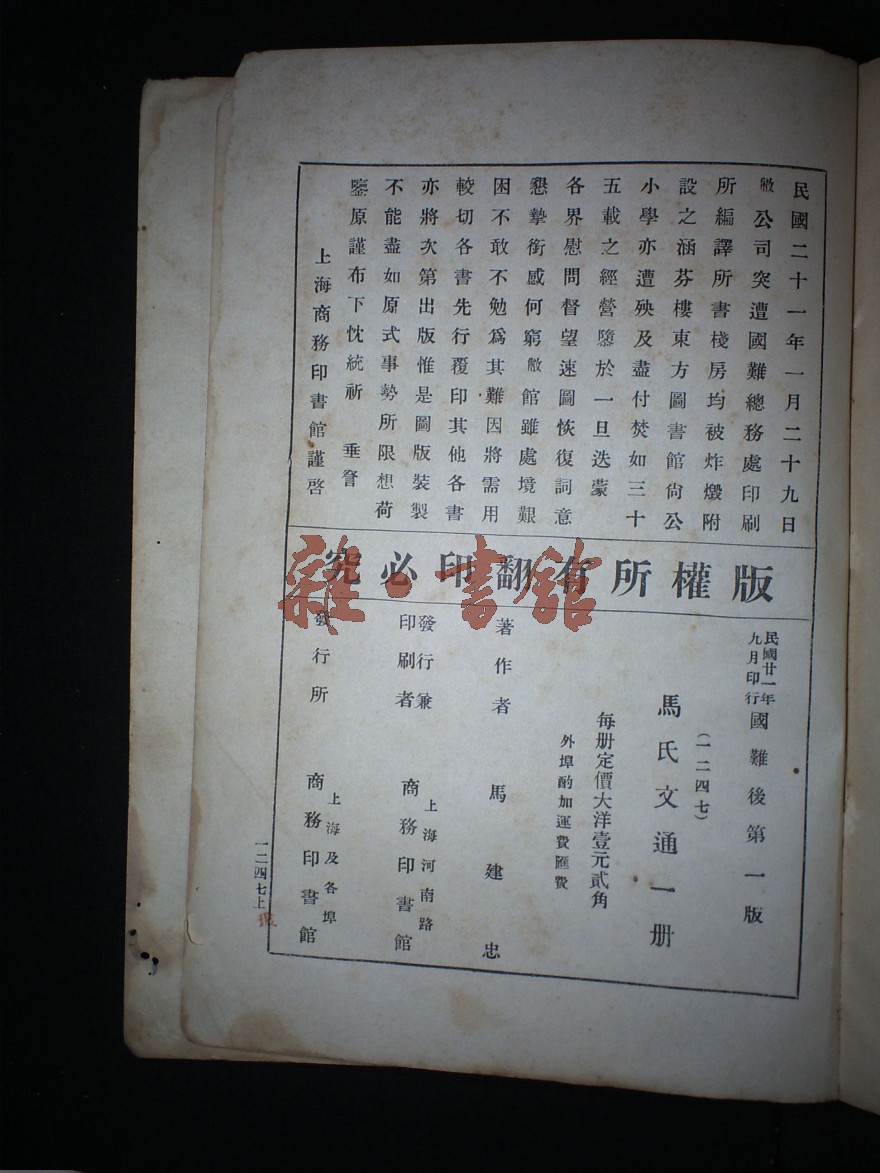 民國二十一年一月二十九日
敝公司突遭國難總務處印刷
所編譯所書棧房均被炸燬附
設之涵芬樓東方圖書館尙公
小學亦遭殃及盡付焚如三十
五載之經營隳於一旦迭蒙
各界慰問督望速圖恢復詞意
懇摯銜感何窮敝館雖處境艱
困不敢不勉爲其難因將需用
較切各書先行覆印其他各書
亦將次第出版惟是圖版裝製
不能盡如原式事勢所限想荷
鑒原謹布下忱統祈 垂詧
上海商務印書館謹啓
版權所有翻印必究
民國廿一年
九月印行
國難後第一版
(一二四七)
馬氏文通一册
每册定價大洋壹元貳角
外埠酌加運費匯費
著作者 馬建忠
發行兼
印刷者
上海河南路
商務印書館
發行所
上海及各埠
商務印書館
一二四七上
雜·書館